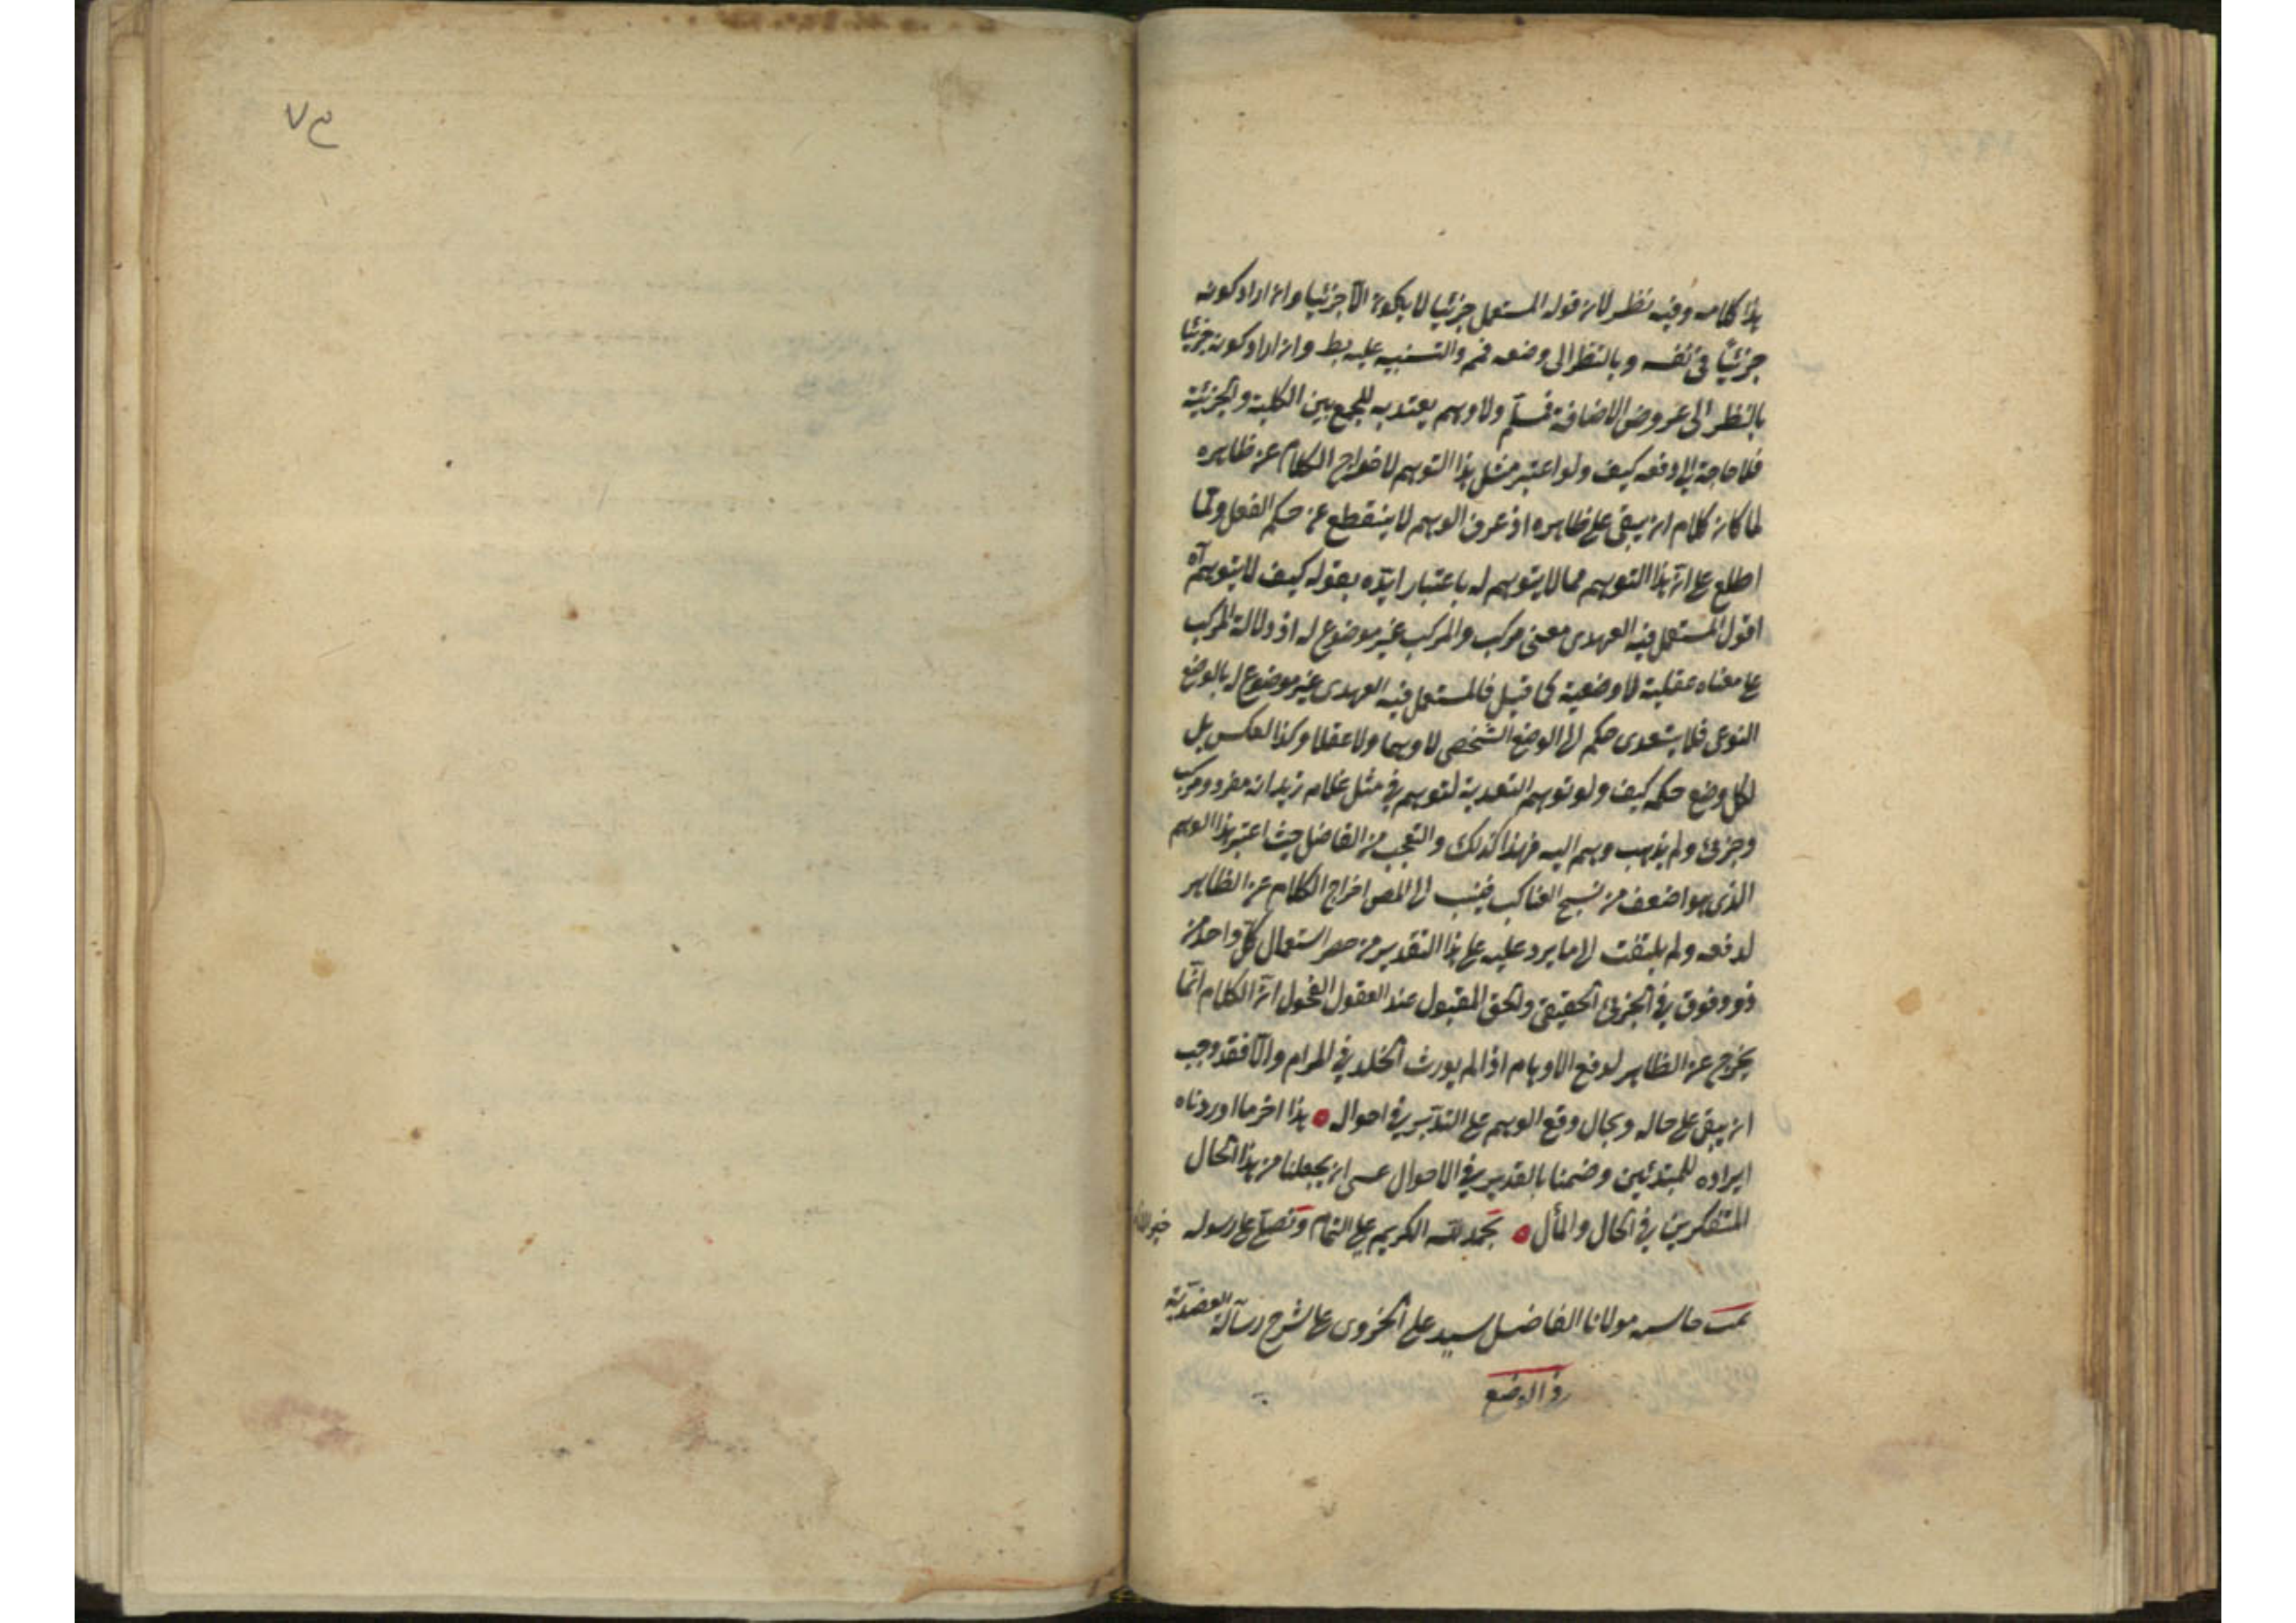 هذا كلامه وفيه نظر لان قوله المستعمل جزئيا لا يكون الا جزئيا وان اراد كونه
جزئيا في نفسه وبالنظر الى وضعه فم والتنبيه عليه بط وان اراد كونه جزئيا
بالنظر الى عروض الاضافة فسلم ولا وهم يعتد به للجمع بين الكلية والجزئية
فلا حاجة الى دفعه كيف ولو اعتبر مثل هذا التوهم لاخراج الكلام عن ظاهره
لما كان كلام ان يبقى على ظاهره اذ عرق الوهم لا ينقطع عن حكم الفعل ولما
اطلع على ان هذا التوهم مما لا يتوهم له باعتبار ايده بقوله كيف لا يتوهم آه
اقول المستعمل فيه العهدى معنى مركب والمركب غير موضوع له اذ دلالة المركب
على معناه عقلية لا وضعية كما قيل فالمستعمل فيه العهدى غير موضوع له بالوضع
النوعى فلا يتعدى حكم الى الوضع الشخصى لا وهما ولا عقلا وكذا العكس بل
لكل وضع حكمه كيف ولو توهم التعدية لتوهم في مثل غلام زيد انه مفرد ومركب
وجزئى ولم يذهب وهم اليه فهذا كذلك والتعجب من الفاضل حيث اعتبر هذا الوهم
الذى هو اضعف من نسج العناكب فينسب الى المص اخراج الكلام عن الظاهر
لدفعه ولم يلتفت الى ما يرد عليه على هذا التقدير من حصر استعمال كل واحد من
ذو وفوق في الجزئى الحقيقى والحق المقبول عند العقول الفحول ان الكلام انما
يخرج عن الظاهر لدفع الاوهام اذا لم يورث الخلل في المرام والا فقد وجب
ان يبقى على حاله ويحال دفع الوهم على التدبير في احواله هذا اخر ما اوردناه
ايراده للمبتدئين وضمنا بالقدير في الاحوال عسى ان يجعلنا من هذا الحال
المتفكرين في الحال والمأل نحمد لله الكريم على التمام ونصلى على رسوله خير
تمت مولانا الفاضل سيد على شرح رسالة العضدية
في الوضع
٧٣